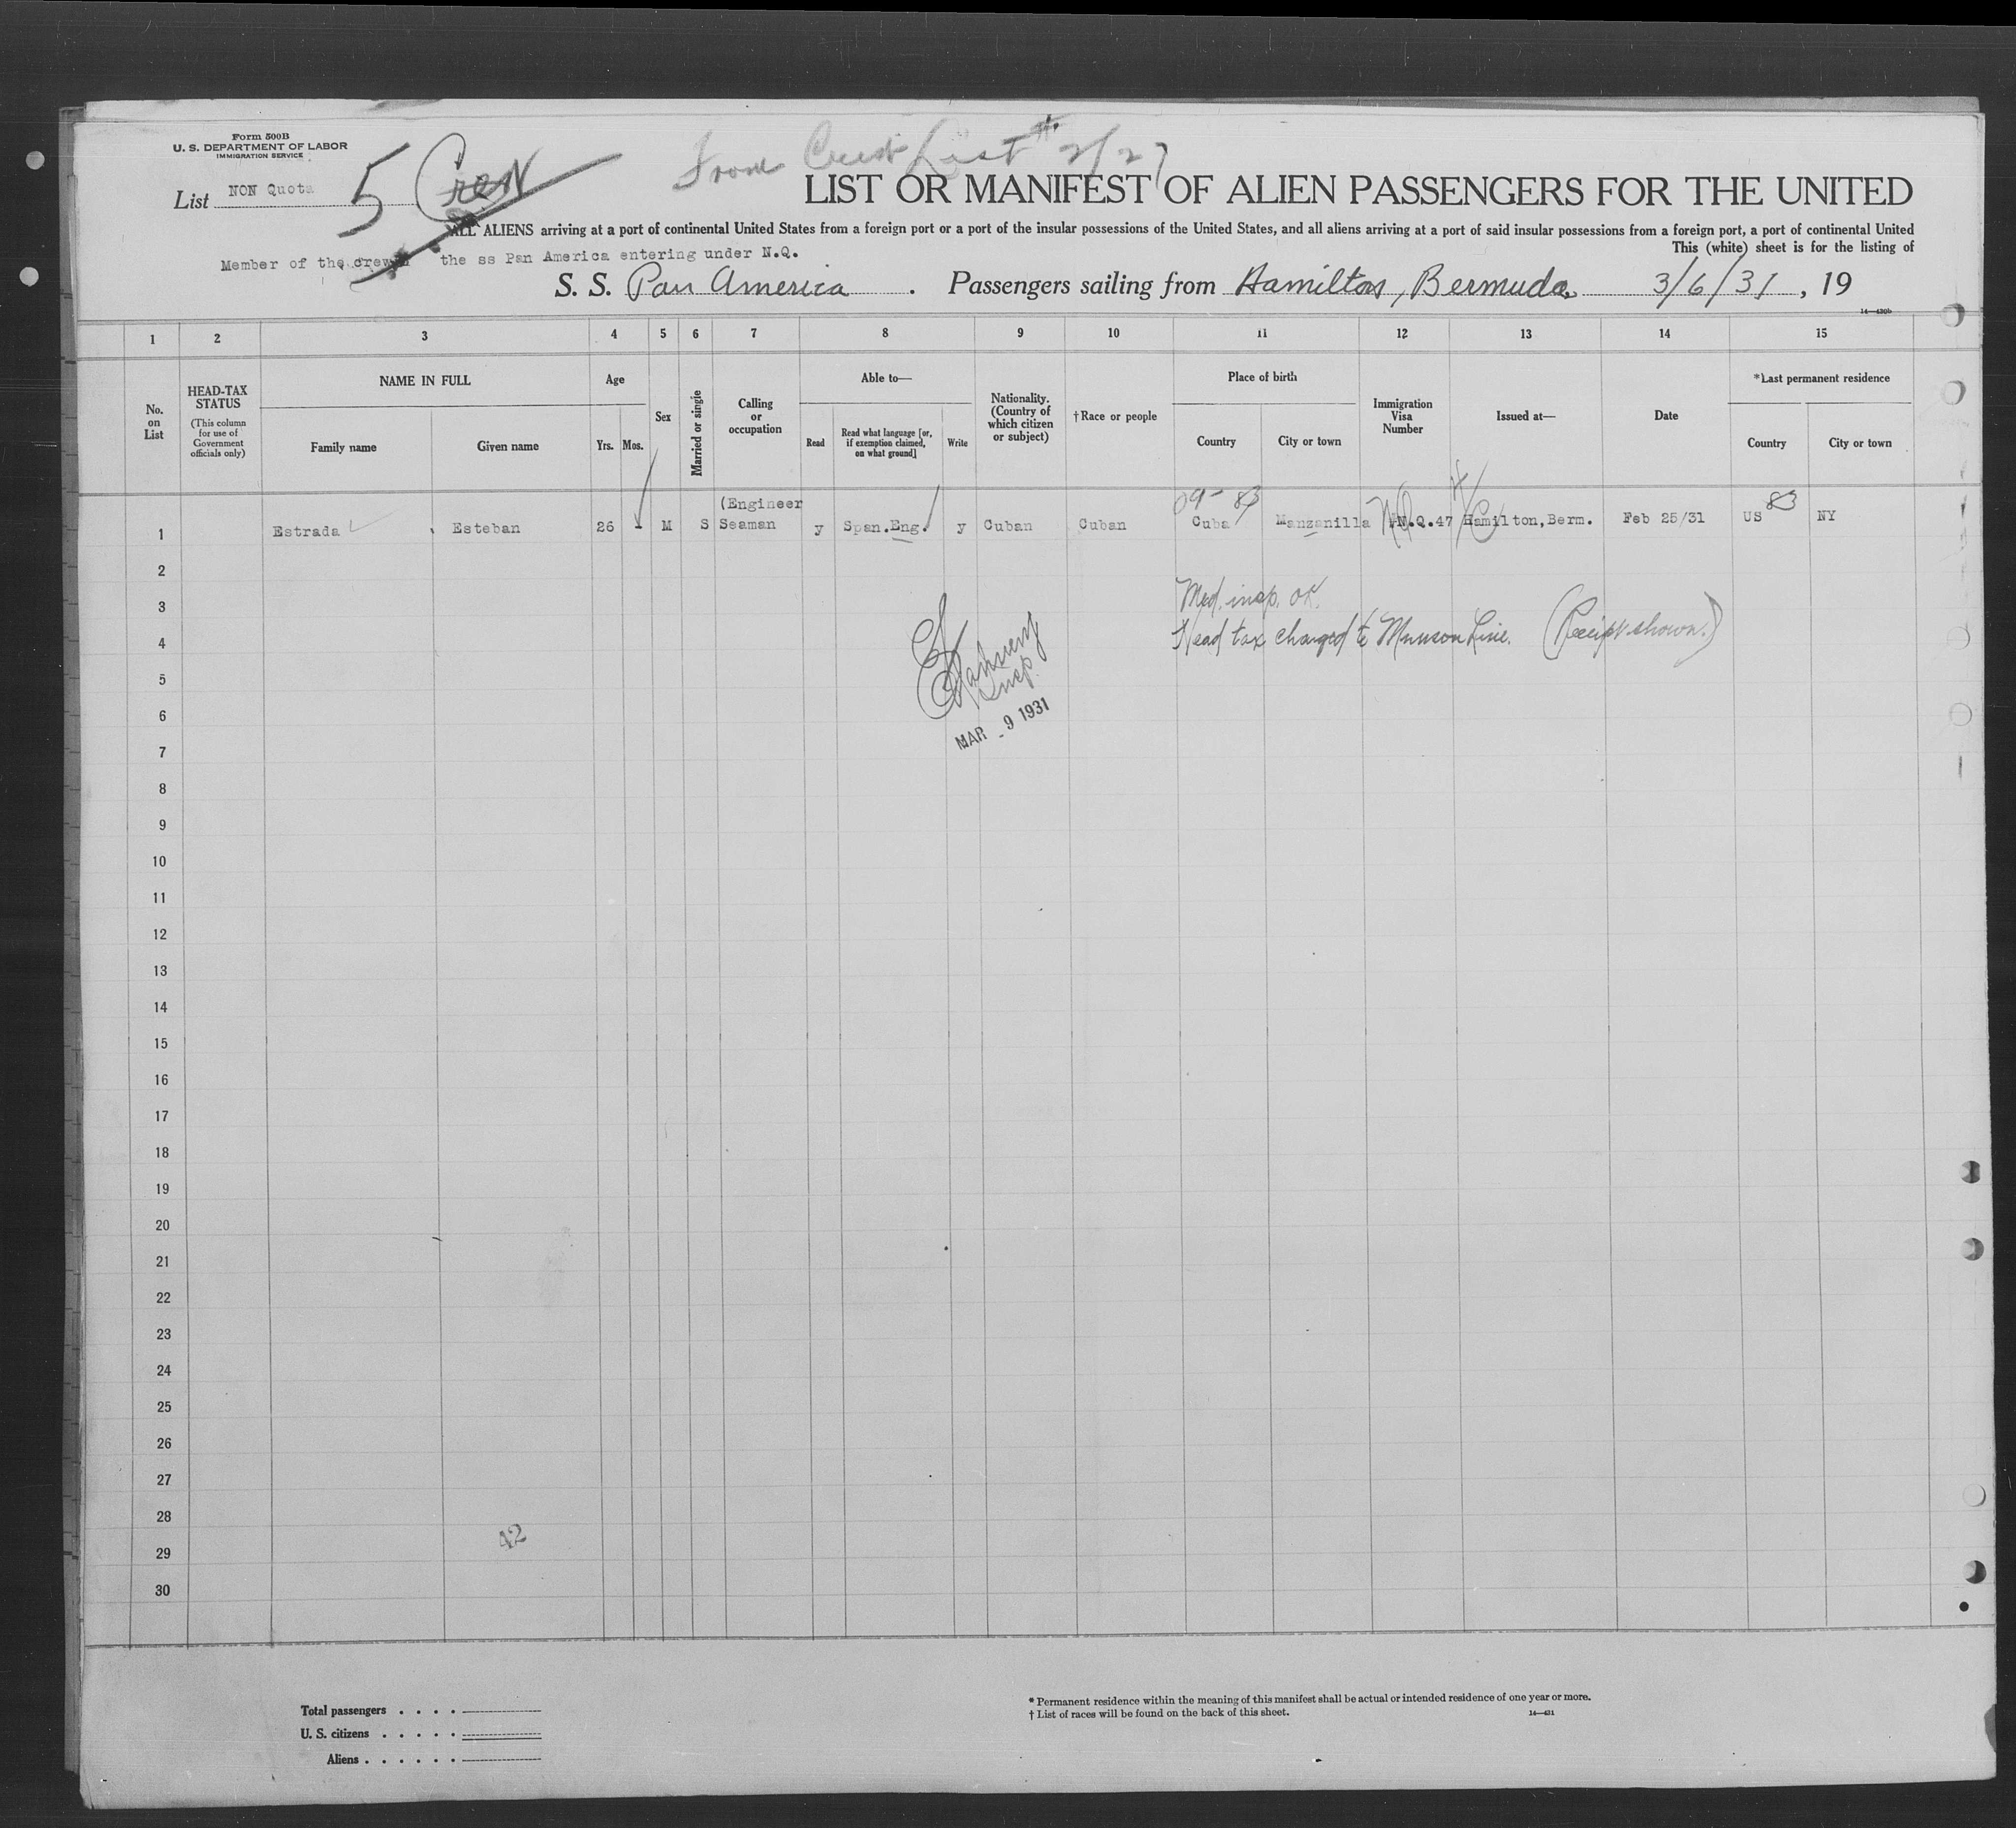 Form 500B
U. S. DEPARTMENT OF LABOR
IMMIGRATION SERVICE
From List # 2/27
List NON Quota 5 Crew
LIST OR MANIFEST OF ALIEN PASSENGERS FOR THE UNITED
ALL ALIENS arriving at a port of continental United States from a foreign port or a port of the insular possessions of the United States, and all aliens arriving at a port of said insular possessions from a foreign port, a port of continental United
This (white) sheet is for the listing of
Member of the crew the ss Pan America entering under N.Q.
S. S. Pan America . Passengers sailing from Hamilton, Bermuda 3/6/31, 19
14—430b
1 2 3 4 5 6 7 8 9 10 11 12 13 14 15
No. on List
HEAD-TAX STATUS
(This column for use of Government officials only)
NAME IN FULL
Family name Given name
Age
Yrs. Mos.
Sex
Married or single
Calling or occupation
Able to—
Read
Read what language [or, if exemption claimed, on what ground]
Write
Nationality. (Country of which citizen or subject)
†Race or people
Place of birth
Country City or town
Immigration Visa Number
Issued at—
Date
*Last permanent residence
Country City or town
(Engineer 09- 83 83
1 Estrada Esteban 26 - M S Seaman y Span.Eng. y Cuban Cuban Cuba Manzanilla N.Q.47 Hamilton,Berm. Feb 25/31 US NY
2
Med. insp. OK.
3
Head tax charged to Munson Line. (Receipt shown.)
4
Insp.
5
6
MAR 9 1931
7
8
9
10
11
12
13
14
15
16
17
18
19
20
21
22
23
24
25
26
27
28
42
29
30
Total passengers . . . .
U. S. citizens . . . . .
Aliens . . . . . .
* Permanent residence within the meaning of this manifest shall be actual or intended residence of one year or more.
† List of races will be found on the back of this sheet.
14—431